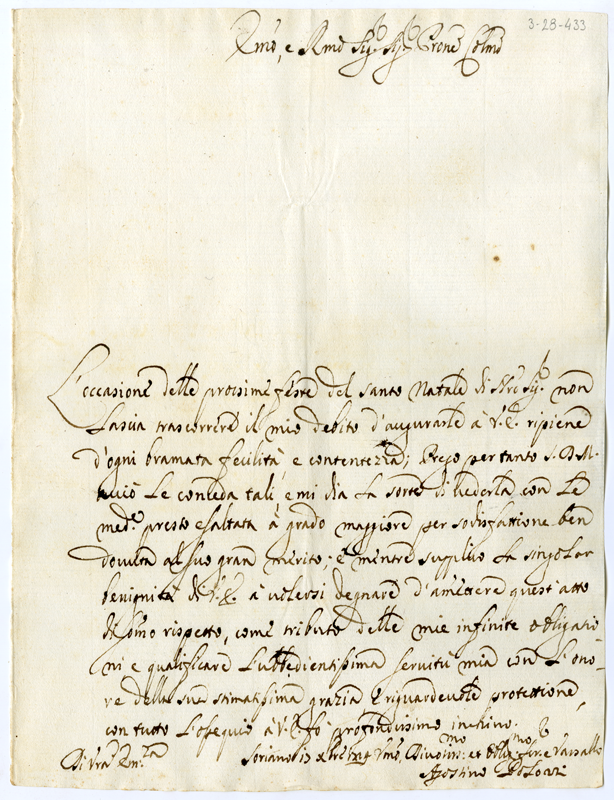 3-28-433
Emo, e Rmo Sigr. Sigr. Prone Colmo
L'occasione delle prossime feste del Santo Natale di Nro Sigr. non
Lascia trascorrere il mio debito d'augurarle à V. E. ripiene
d'ogni bramata felicità, e contentezza; Prego pertanto S. D. M.
acciò Le conceda tali, e mi dia La sorte di vederla con Le
med.e presto esaltata à grado maggiore per sodisfattione ben
dovuta al suo gran merito; e mentre supplico La singolar
benignità di V. E. à volersi degnare d'amettere quest'atto
di sõmo rispetto, come tributo delle mie infinite obligatio
ni e qualificare L'ubbidientissima servitù mia con L'ono-
re della sua stimatissima grazia, e riguardevole protettione,
con tutto L'ossequio à V. E. fò profondissimo inchino.
Di Vra Em.za
Soriano 15 Vmo, Divotmo: et Obligmo Ser.e e Vassallo
Agostino